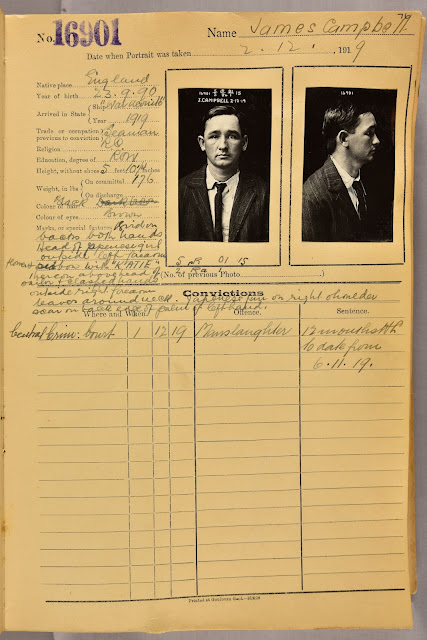 No. 16901
Name James Campbell 79.
Date when Portrait was taken 2.12. , 1919
Native place England
Year of birth 23.9.90
Arrived in State { Ship
Year 1919
Trade or occupation previous to conviction } Seaman
Religion R.C.
Education, degree of R & W
Height, without shoes 5 feet inches
Weight, in lbs { On committal 176
On discharge
Colour of hair Black
Colour of eyes Brown
Marks, or special features: Bird on
backs both hands
Head of Japanese girl
outside left forearm
flowers ribbon with "KATIE"
thereon above head of
sailor & clasped hands
outside right forearm
leaves around neck. Japanese on right shoulder
scar on palm of left hand.
16901 15
J.CAMPBELL 2-12-19
16901
01 15
No. of previous Photo
Convictions
Where and When. Offence. Sentence.
Central Crim: Court 1 12 19 Manslaughter 12 months HL
to date from
6.11.19.
Printed at Goulburn Gaol.